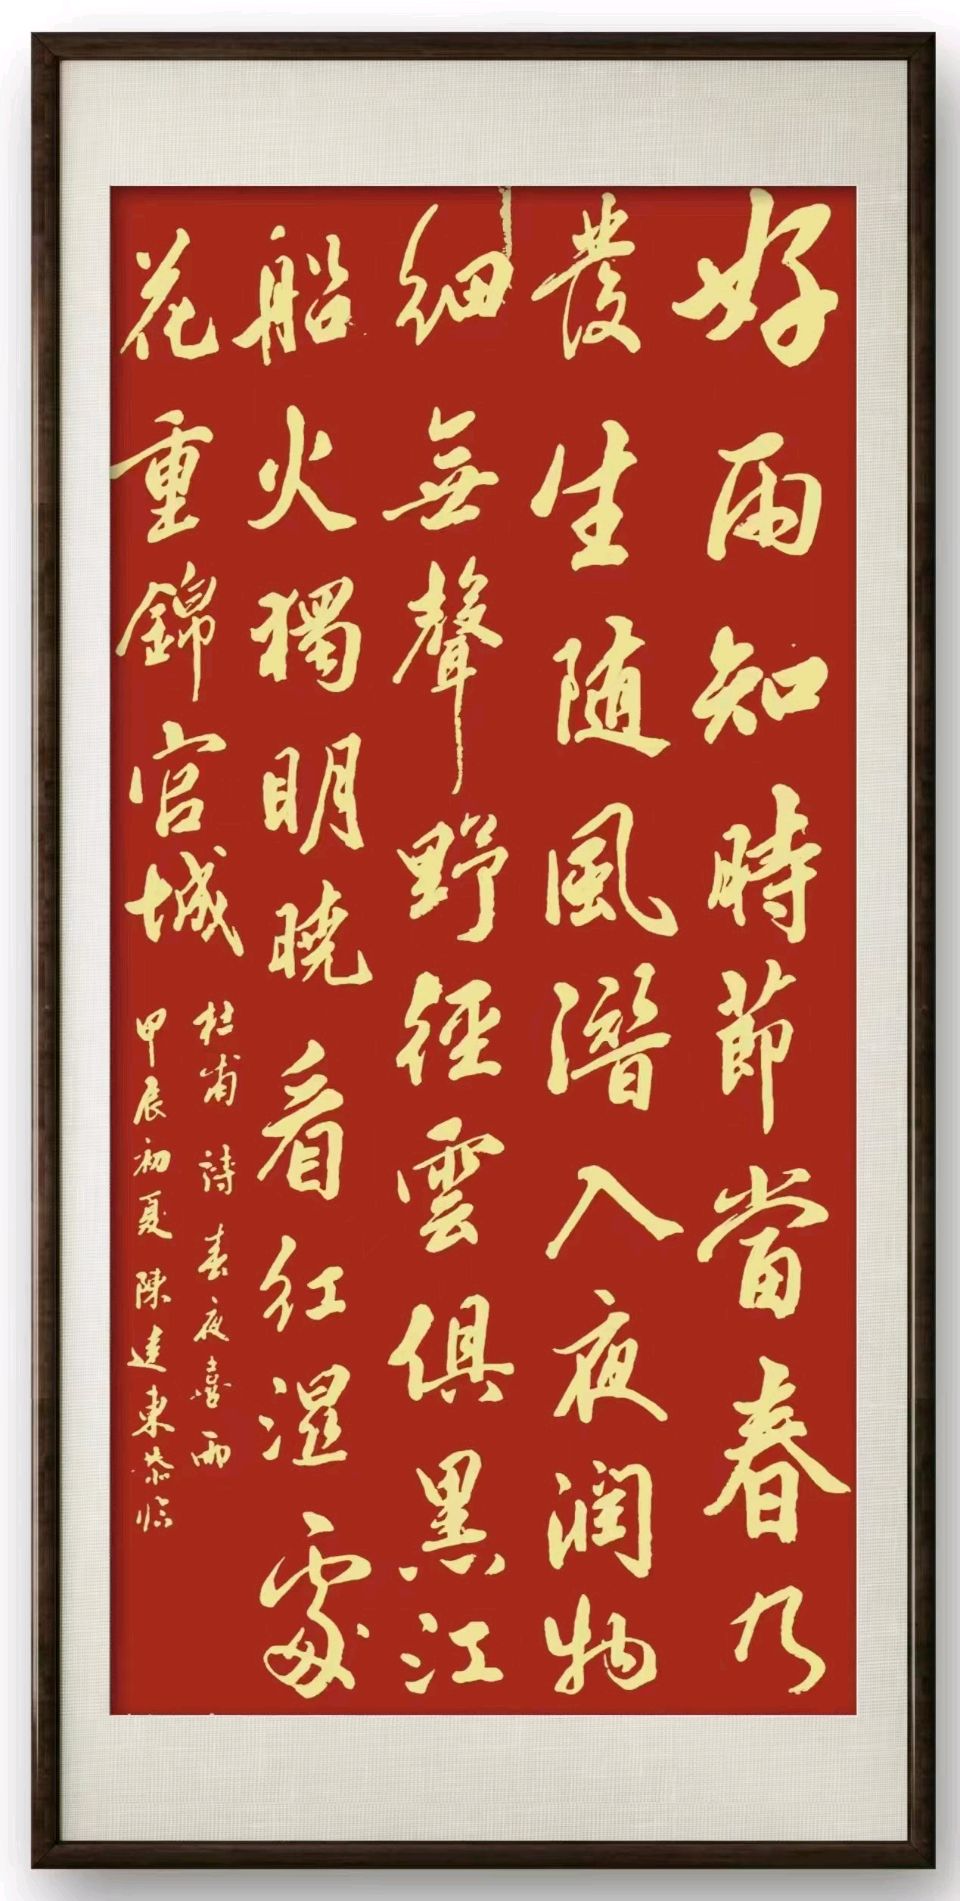 好雨知時節當春乃
發生随風潛入夜润物
细無聲野徑雲俱黑江
船火獨明曉看红濕處
花重錦官城
杜甫詩春夜喜雨
甲辰初夏陳達東恭临